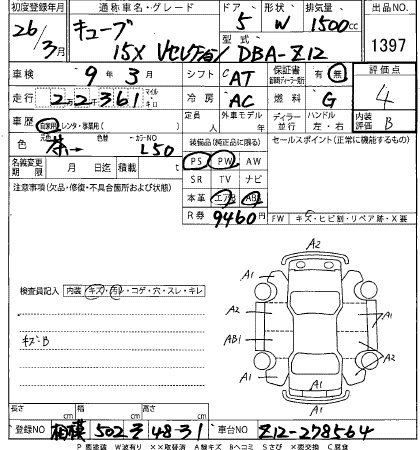 初度登録年月 通称車名・グレード ドア 形状 排気量 出品NO
26/3月 キューブ 5 W 1500cc
15X Vセレクション 型式 DBA-Z12 1397
車検 9年3月 シフト CAT 保証書 有・無 評価点
走行 22千361 マイル キロ 冷房 AC 燃料 G 4
車歴 自家用・レンタ・事業用( ) 定員 人 外車モデル ディーラー 並行 ハンドル 左・右 内装評価 B
色 元色 茶→ 色替 カラーNO L50 装備品(純正品に限る) セールスポイント(正常に機能するもの)
名義変更期限 月 日迄 積載 t PS PW AW
注意事項(欠品・修復・不具合箇所および状態) SR TV ナビ
本革 エアB ABS
R券 9460円 FW キズ・ヒビ割・リペア跡・X要
A2
A1 A1
検査員記入 内装 キズ・汚レ・コゲ・穴・スレ・キレ
A2 A1
キズB AB1
A2
A1 A1
A1
A2
長さ cm 幅 cm 高さ cm
登録NO 相模 502 そ 48-31 車台NO Z12-278564
P 要塗装 W波有り ××取替済 A線キズ Bヘコミ Sさび ×要交換 C腐食